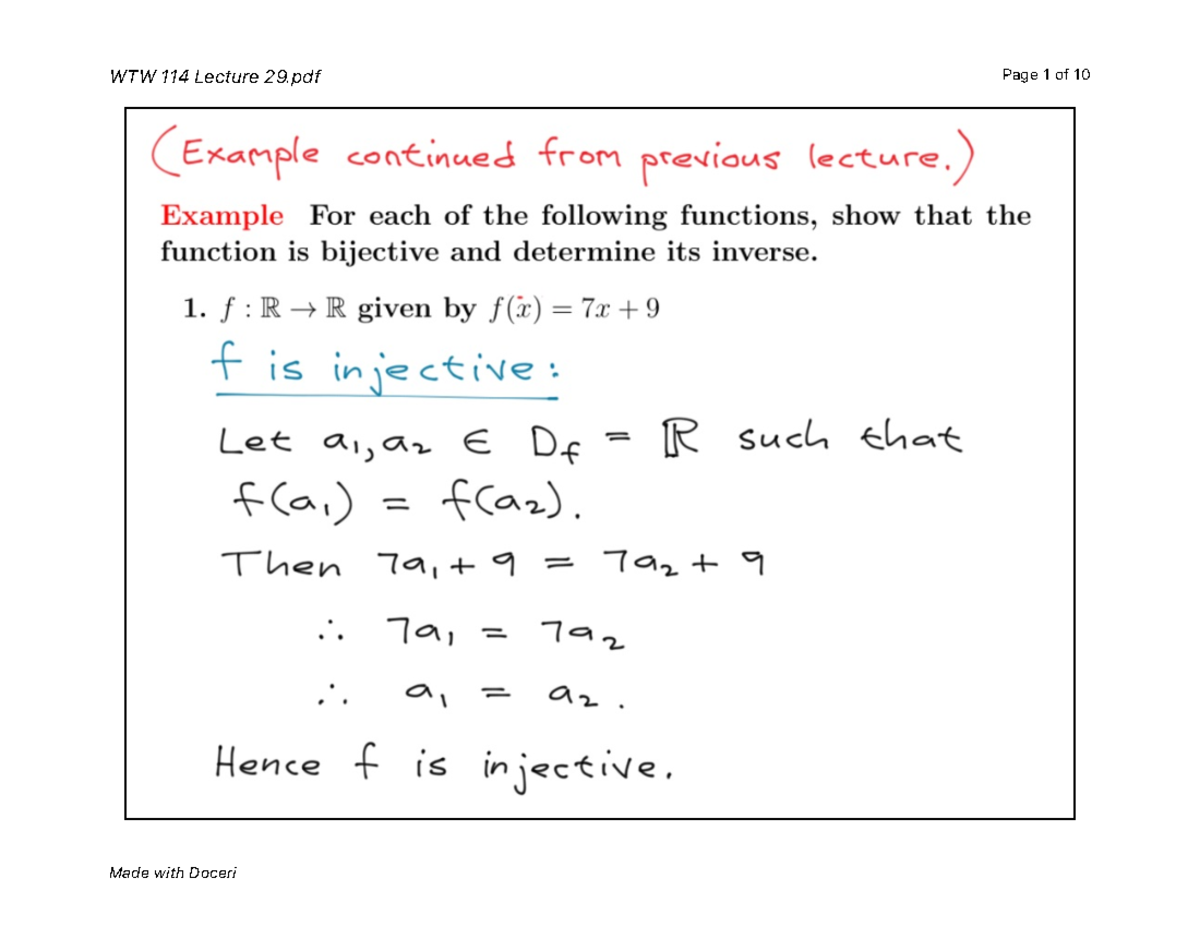 WTW 114 Lecture 29.pdf
Page 1 of 10
(Example continued from previous lecture.)
Example For each of the following functions, show that the
function is bijective and determine its inverse.
1. f : ℝ → ℝ given by f(x) = 7x + 9
f is injective:
Let a₁, a₂ ∈ D_f = ℝ such that
f(a₁) = f(a₂).
Then 7a₁ + 9 = 7a₂ + 9
∴ 7a₁ = 7a₂
∴ a₁ = a₂.
Hence f is injective.
Made with Doceri